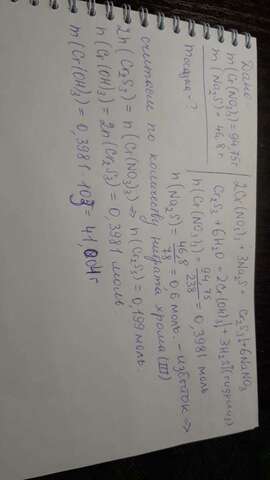 Дано
m(Cr(NO₃)₃) = 94,75г
m(Na₂S) = 46,8г
m осадка - ?
2Cr(NO₃)₃ + 3Na₂S → Cr₂S₃↓ + 6NaNO₃
Cr₂S₃ + 6H₂O → 2Cr(OH)₃↓ + 3H₂S↑ (гидролиз)
n(Cr(NO₃)₃) = 94,75/238 = 0,3981 моль
n(Na₂S) = 46,8/78 = 0,6 моль - избыток ⇒
считаем по количеству нитрата хрома (III)
2n(Cr₂S₃) = n(Cr(NO₃)₃) ⇒ n(Cr₂S₃) = 0,199 моль
n(Cr(OH)₃) = 2n(Cr₂S₃) = 0,3981 моль
m(Cr(OH)₃) = 0,3981 · 103 = 41,004г